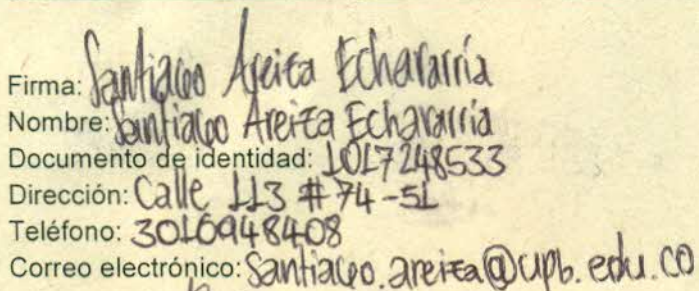 Firma: Santiago Areiza Echavarría
Nombre: Santiago Areiza Echavarría
Documento de identidad: 1017248533
Dirección: Calle 113 # 74-51
Teléfono: 3016948408
Correo electrónico: Santiago.areiza@upb.edu.co